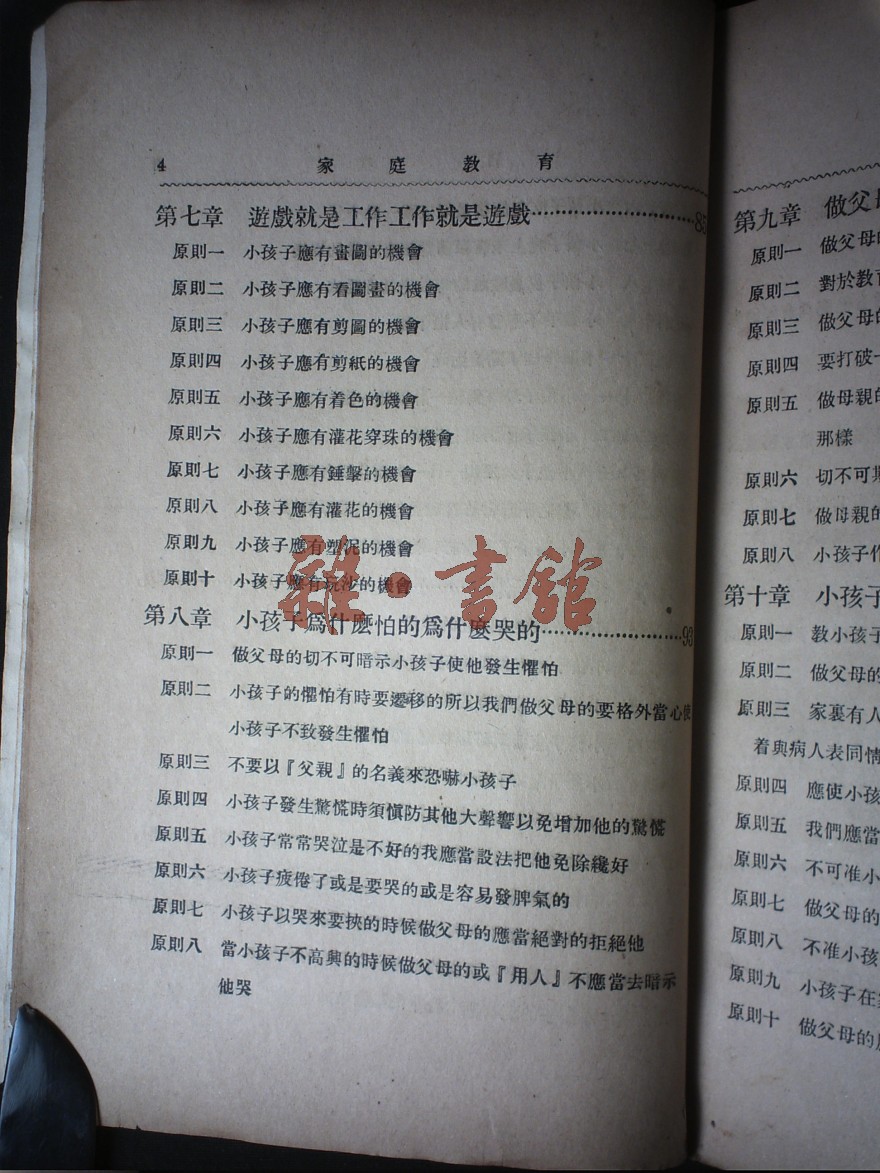 4 家庭教育
第七章 遊戲就是工作工作就是遊戲
原則一 小孩子應有畫圖的機會
原則二 小孩子應有看圖畫的機會
原則三 小孩子應有剪圖的機會
原則四 小孩子應有剪紙的機會
原則五 小孩子應有着色的機會
原則六 小孩子應有灌花穿珠的機會
原則七 小孩子應有錘擊的機會
原則八 小孩子應有灌花的機會
原則九 小孩子應有塑泥的機會
原則十 小孩子應有玩沙的機會
雜·書館
第八章 小孩子爲什麽怕的爲什麽哭的……93
原則一 做父母的切不可暗示小孩子使他發生懼怕
原則二 小孩子的懼怕有時要遷移的所以我們做父母的要格外當心使
小孩子不致發生懼怕
原則三 不要以『父親』的名義來恐嚇小孩子
原則四 小孩子發生驚慌時須愼防其他大聲響以免增加他的驚慌
原則五 小孩子常常哭泣是不好的我應當設法把他免除纔好
原則六 小孩子疲倦了或是要哭的或是容易發脾氣的
原則七 小孩子以哭來要挾的時候做父母的應當絕對的拒絕他
原則八 當小孩子不高興的時候做父母的或『用人』不應當去暗示
他哭
第九章 做父
原則一 做父母的
原則二 對於教
原則三 做父母
原則四 要打破一
原則五 做母親的
那樣
原則六 切不可
原則七 做母親的
原則八 小孩子作
第十章 小孩子
原則一 教小孩子
原則二 做父母的
原則三 家裏有人
着與病人表同情
原則四 應使小孩
原則五 我們應當
原則六 不可准小
原則七 做父母的
原則八 不准小孩
原則九 小孩子在
原則十 做父母的